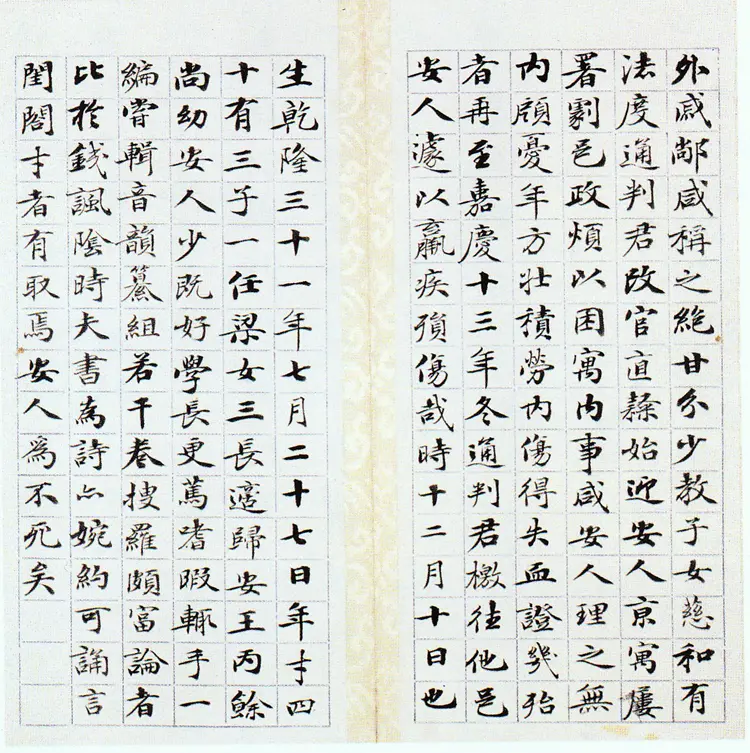 外戚䣊咸稱之絶甘分少教子女慈和有
法度通判君改官直隸始迎安人京寓屢
署劇邑政煩以困寓内事咸安人理之無
内顧憂年方壯積勞内傷得失血證幾殆
者再至嘉慶十三年冬通判君檄往他邑
安人遽以羸疾殞傷哉時十二月十日也
生乾隆三十一年七月二十七日年才四
十有三子一任梁女三長適歸安王丙餘
尚幼安人少既好學長更篤嗜暇輒手一
編嘗輯音韻纂組若干卷搜羅頗富論者
比於錢諷陰時夫書為詩亦婉約可誦言
閨閣才者有取焉安人爲不死矣